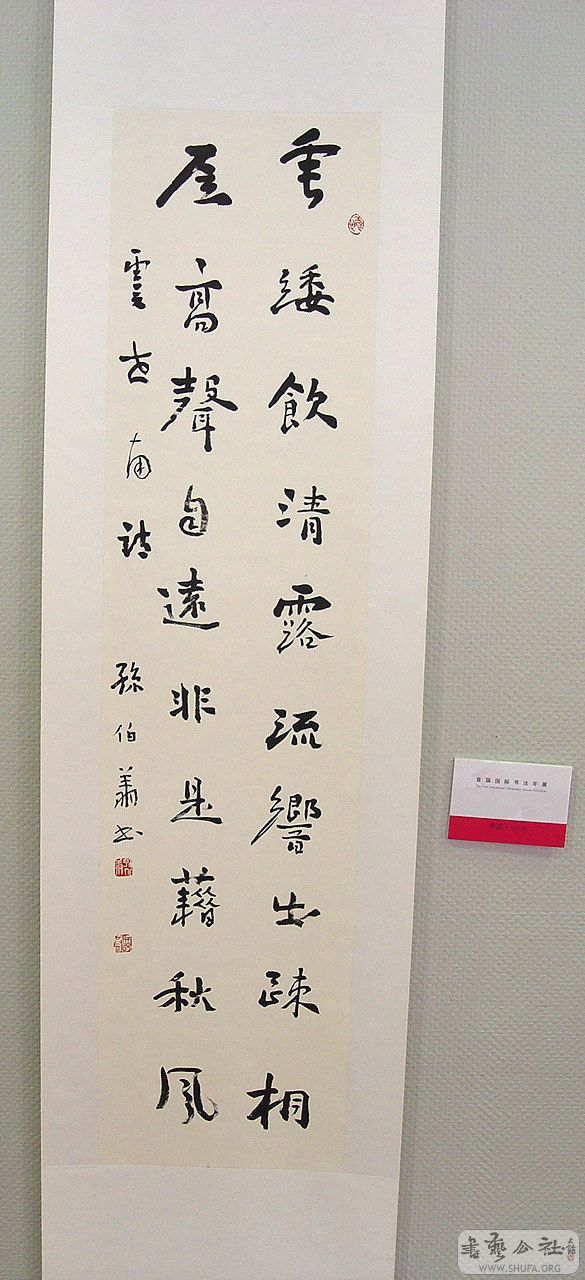 垂緌飲清露流響出疎桐
居高聲自遠非是藉秋風
虞世南詩 孫伯翔書
首届国际书法年展
書藝公社
WWW.SHUFA.ORG